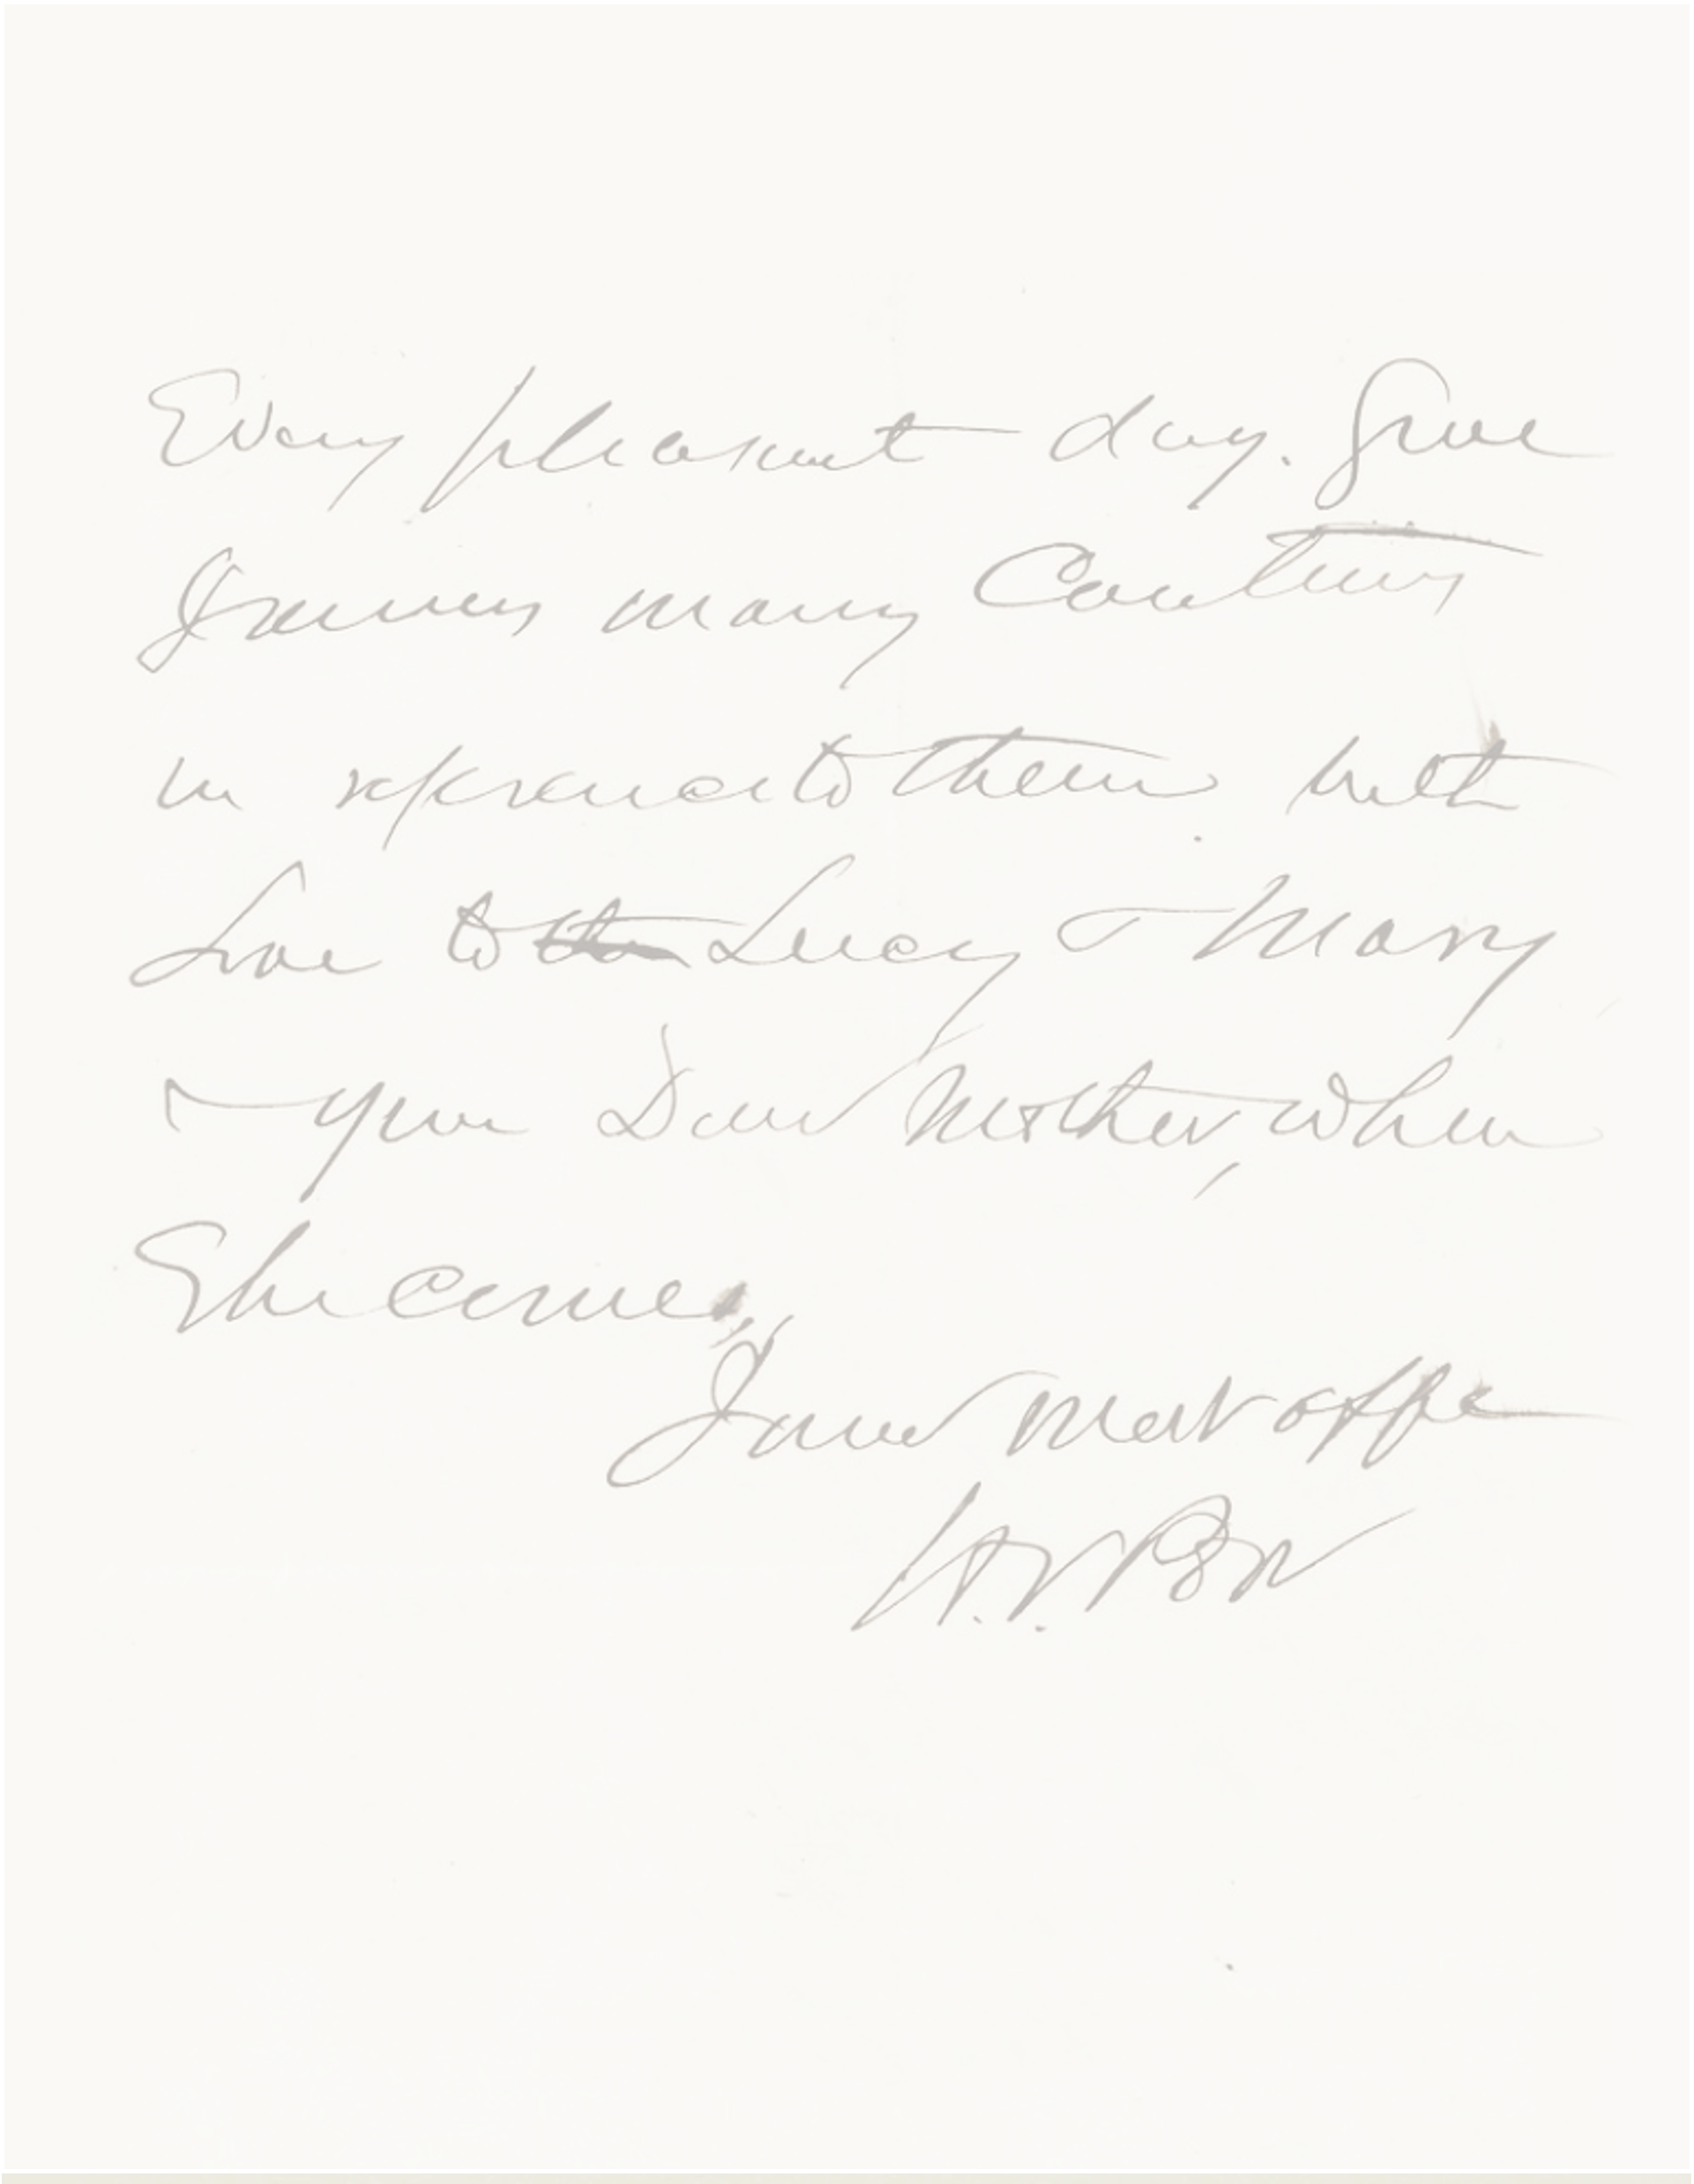 Every pleasant day. Give
James many Cautions
in reference to them. with
Love to Lucy & Mary
& your Dear Mother, when
She comes,
Yours Most aff